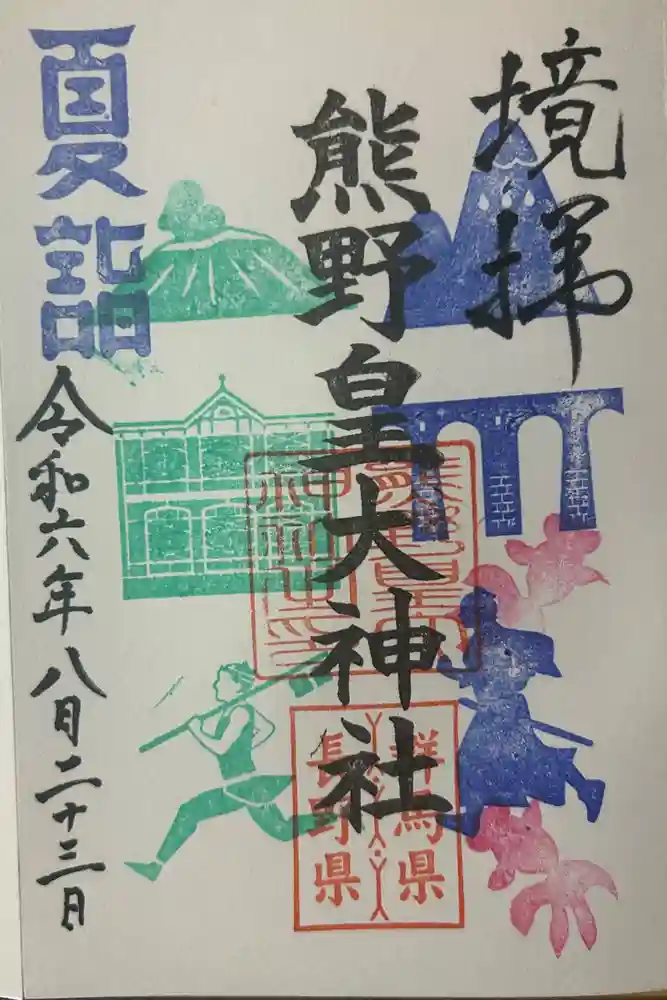 境拝
熊野皇大神社
群馬県
長野県
夏詣
令和六年八月二十三日